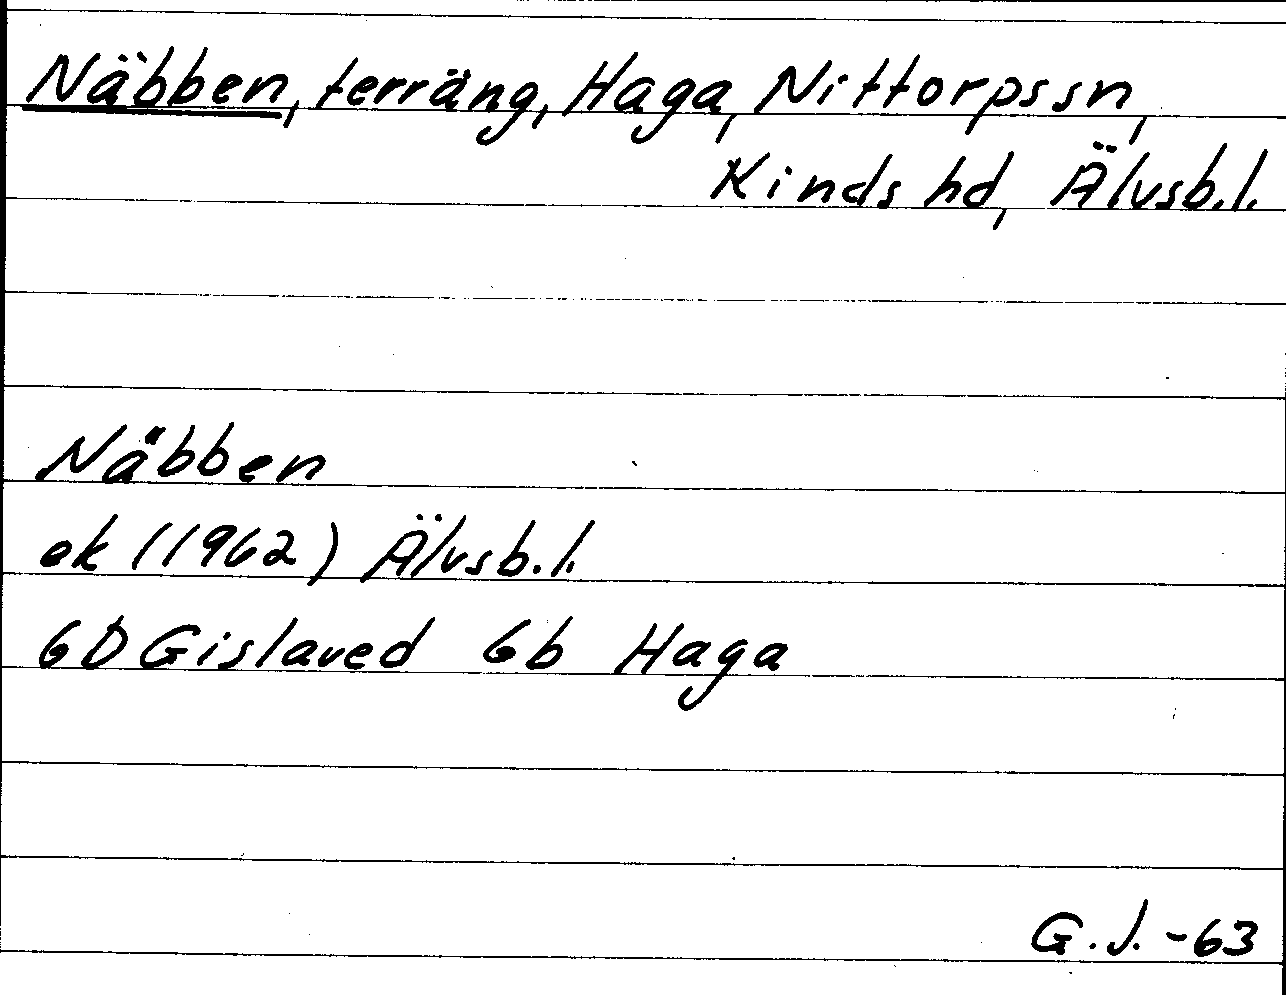 Näbben, terräng, Haga, Nittorpssn,
Kinds hd, Älvsb.l.
Näbben
ek (1962) Älvsb.l.
6D Gislaved 6b Haga
G.J. -63